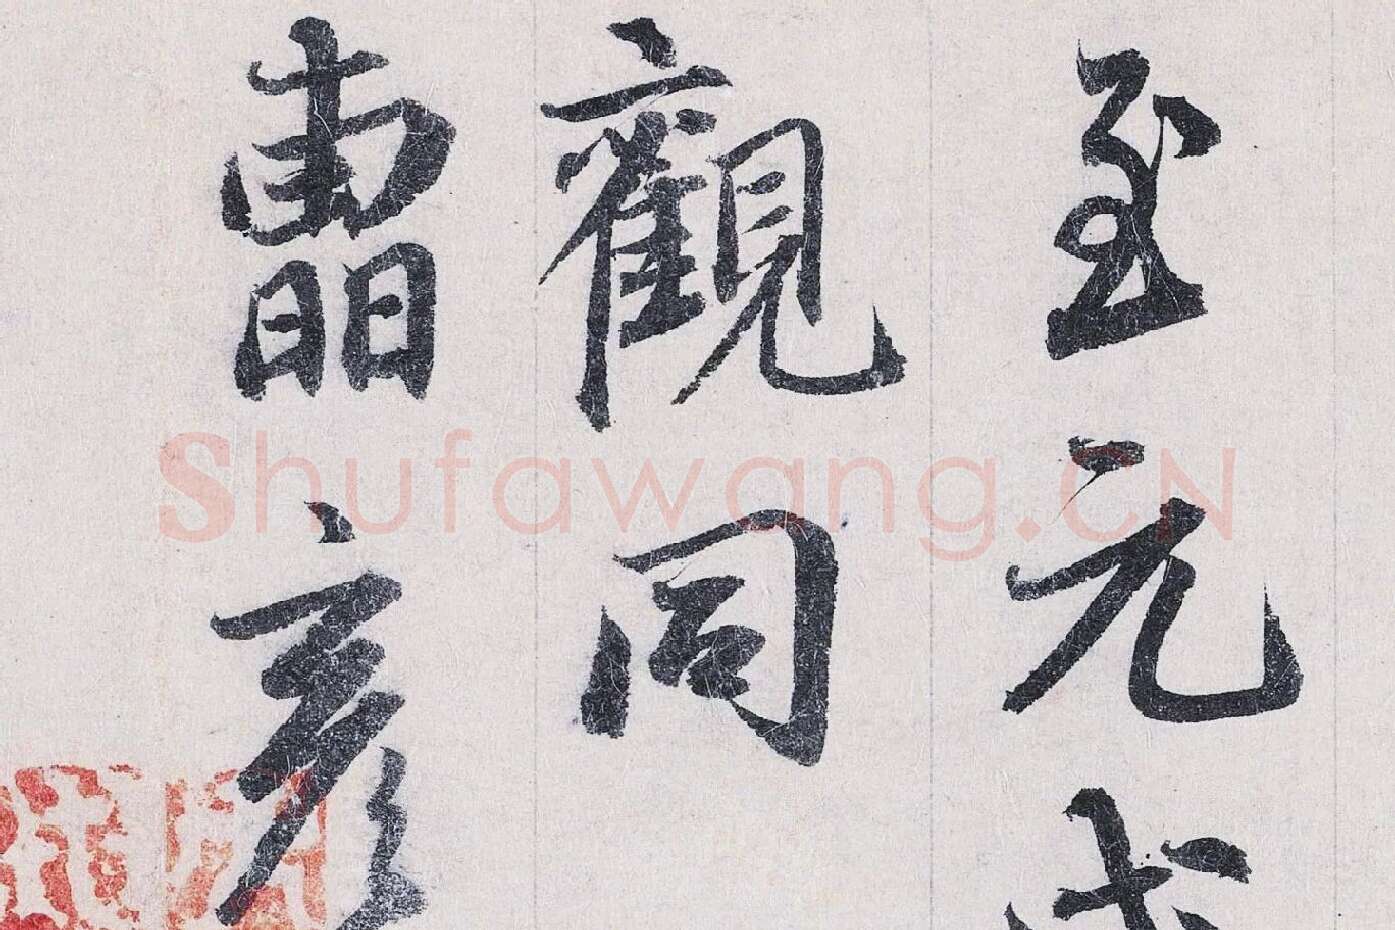 至元
觀同
彥
Shufawang.CN